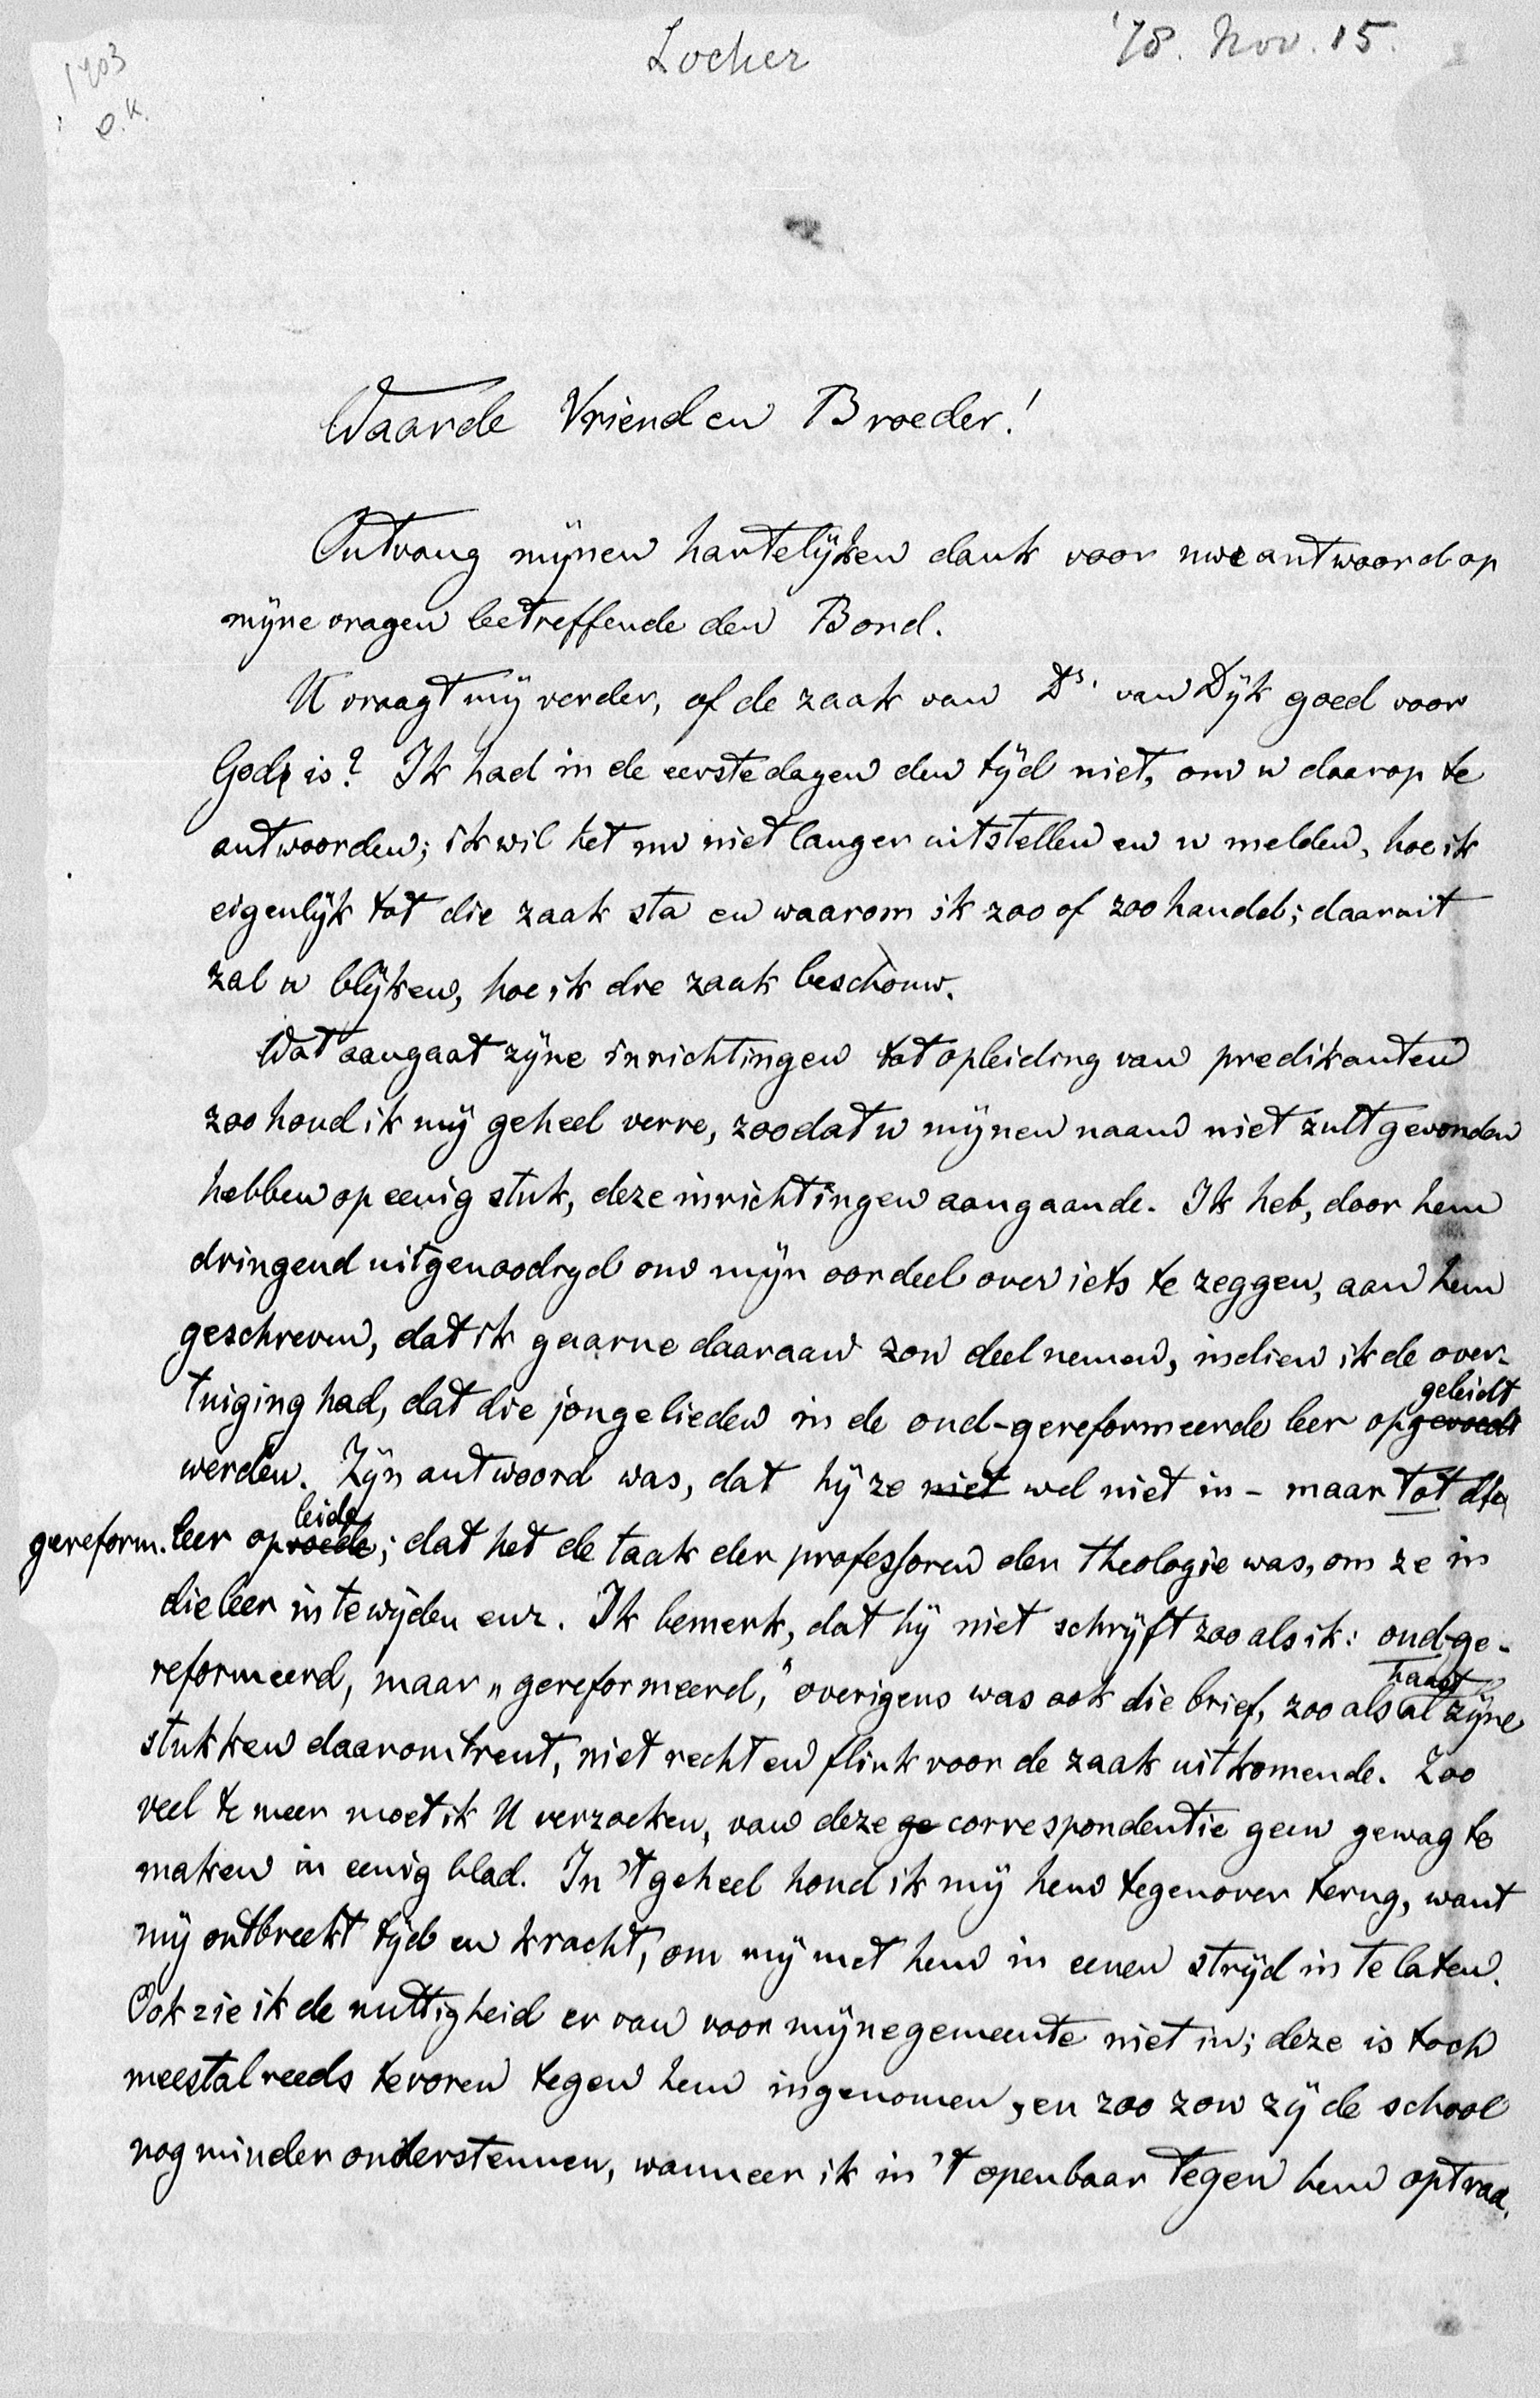 1703
O.K.
Locher
'78. Nov. 15.
Waarde Vriend en Broeder!
Ontvang mijnen hartelijken dank voor uwe antwoord op
mijne vragen betreffende den Bond.
U vraagt mij verder, of de zaak van Ds. van Dijk goed voor
God is? Ik had in de eerste dagen den tijd niet, om u daarop te
antwoorden; ik wil het nu niet langer uitstellen en u melden, hoe ik
eigenlijk tot die zaak sta en waarom ik zoo of zoo handel; daaruit
zal u blijken, hoe ik die zaak beschouw.
Wat aangaat zijne inrichtingen tot opleiding van predikanten
zoo houd ik mij geheel verre, zoodat u mijnen naam niet zult gevonden
hebben op eenig stuk, deze inrichtingen aangaande. Ik heb, door hem
dringend uitgenoodigd om mijn oordeel over iets te zeggen, aan hem
geschreven, dat ik gaarne daaraan zou deel nemen, indien ik de over-
tuiging had, dat die jongelieden in de oud-gereformeerde leer opgevoedt geleidt
werden. Zijn antwoord was, dat hij ze niet wel niet in - maar tot die
gereform. leer opvoede leide; dat het de taak der professoren der theologie was, om ze in
die leer in te wijden enz. Ik bemerk, dat hij niet schrijft zoo als ik: oud-ge-
reformeerd, maar „gereformeerd," overigens was ook die brief, zoo als haast al zijne
stukken daaromtrent, niet recht en flink voor de zaak uitkomende. Zoo
veel te meer moet ik U verzoeken, van deze ge correspondentie geen gewag te
maken in eenig blad. In 't geheel houd ik mij hem tegenover terug, want
mij ontbreekt tijd en kracht, om mij met hem in eenen strijd in te laten.
Ook zie ik de nuttigheid er van voor mijne gemeente niet in; deze is toch
meestal reeds tevoren tegen hem ingenomen, en zoo zou zij de school
nog minder ondersteunen, wanneer ik in 't openbaar tegen hem optrad.